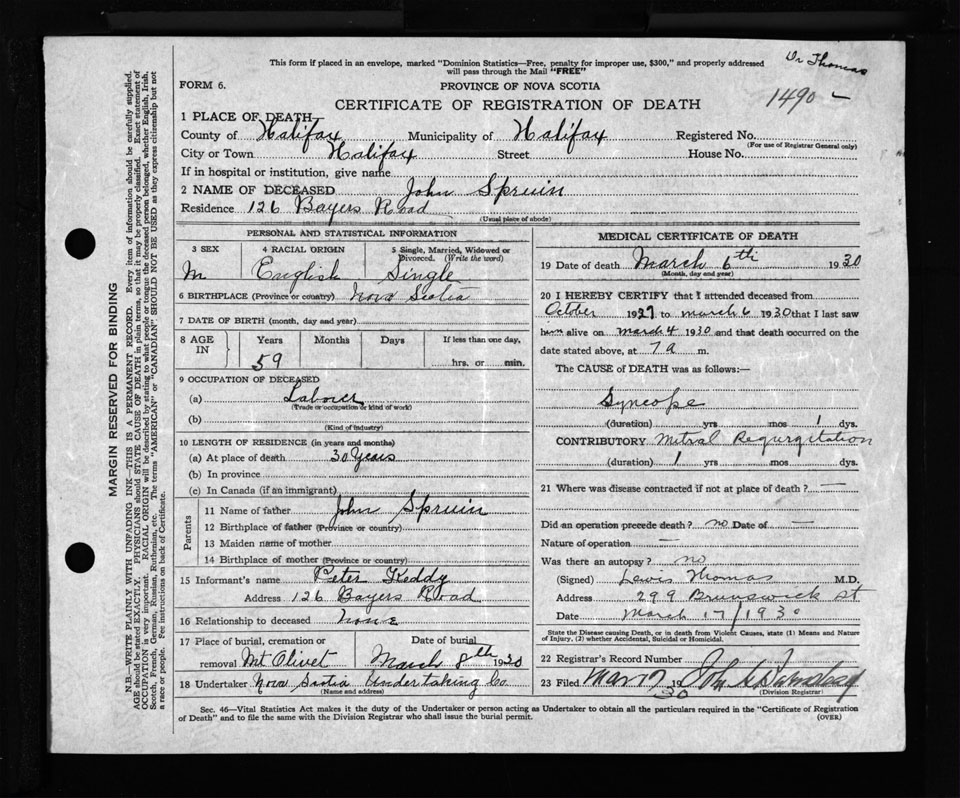 This form if placed in an envelope, marked "Dominion Statistics—Free, penalty for improper use, $300," and properly addressed
will pass through the Mail "FREE"
Dr Thomas
FORM 6.
PROVINCE OF NOVA SCOTIA
CERTIFICATE OF REGISTRATION OF DEATH
1490 –
1 PLACE OF DEATH
County of Halifax Municipality of Halifax Registered No.
(For use of Registrar General only)
City or Town Halifax Street House No.
If in hospital or institution, give name
2 NAME OF DECEASED John Spruin
Residence 126 Bayers Road
(Usual place of abode)
PERSONAL AND STATISTICAL INFORMATION
3 SEX 4 RACIAL ORIGIN 5 Single, Married, Widowed or Divorced. (Write the word)
M English Single
6 BIRTHPLACE (Province or country) Nova Scotia
7 DATE OF BIRTH (month, day and year)
8 AGE IN Years Months Days If less than one day,
59 hrs. or min.
9 OCCUPATION OF DECEASED
(a) Laborer
(Trade or occupation or kind of work)
(b)
(Kind of industry)
10 LENGTH OF RESIDENCE (in years and months)
(a) At place of death 30 Years
(b) In province
(c) In Canada (if an immigrant)
Parents
11 Name of father John Spruin
12 Birthplace of father (Province or country)
13 Maiden name of mother
14 Birthplace of mother (Province or country)
15 Informant's name Peter Keddy
Address 126 Bayers Road
16 Relationship to deceased None
17 Place of burial, cremation or removal Mt Olivet
Date of burial March 8th 1930
18 Undertaker Nova Scotia Undertaking Co
(Name and address)
MEDICAL CERTIFICATE OF DEATH
19 Date of death March 6th 1930
(Month, day and year)
20 I HEREBY CERTIFY that I attended deceased from
October 1927 to March 6 1930 that I last saw
him alive on March 4 1930 and that death occurred on
date stated above, at 7 a m.
The CAUSE of DEATH was as follows:—
Syncope
(duration) yrs mos 1 dys.
CONTRIBUTORY Mitral Regurgitation
(duration) 1 yrs mos dys.
21 Where was disease contracted if not at place of death? —
Did an operation precede death? no Date of —
Nature of operation —
Was there an autopsy? no
(Signed) Lewis Thomas M.D.
Address 299 Brunswick St
Date March 17/1930
State the Disease causing Death, or in death from Violent Causes, state (1) Means and Nature
of Injury, (2) whether Accidental, Suicidal or Homicidal.
22 Registrar's Record Number
23 Filed Mar 17 1930 John
(Division Registrar)
Sec. 46—Vital Statistics Act makes it the duty of the Undertaker or person acting as Undertaker to obtain all the particulars required in the "Certificate of Registration
of Death" and to file the same with the Division Registrar who shall issue the burial permit.
(OVER)
MARGIN RESERVED FOR BINDING
N.B.—WRITE PLAINLY WITH UNFADING INK—THIS IS A PERMANENT RECORD. Every item of information should be carefully supplied.
AGE should be stated EXACTLY. PHYSICIANS should STATE CAUSE OF DEATH in plain terms, so that it may be properly classified. Exact statement of
OCCUPATION is very important. RACIAL ORIGIN will be described by stating to what people or tongue the deceased person belonged, whether English, Irish,
Scotch, French, German, Russian, Ruthenian, etc. The terms "AMERICAN" or "CANADIAN" SHOULD NOT BE USED as they express citizenship but not
a race or people. See instructions on back of Certificate.